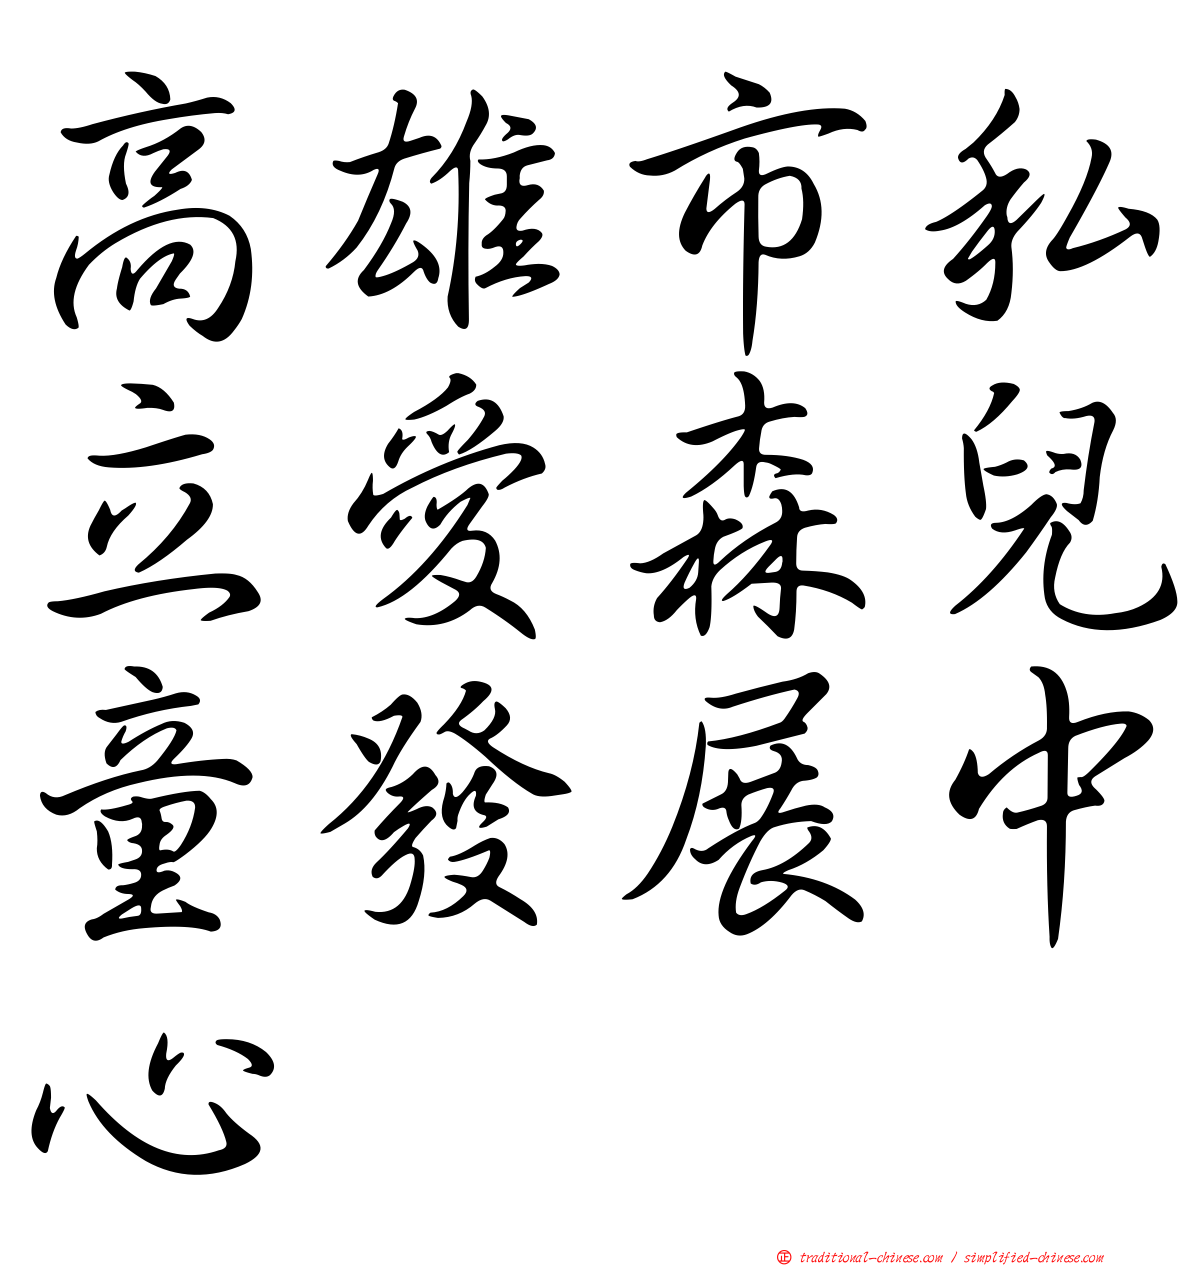 高雄市私
立愛森兒
童發展中
心
正 traditional-chinese.com / simplified-chinese.com